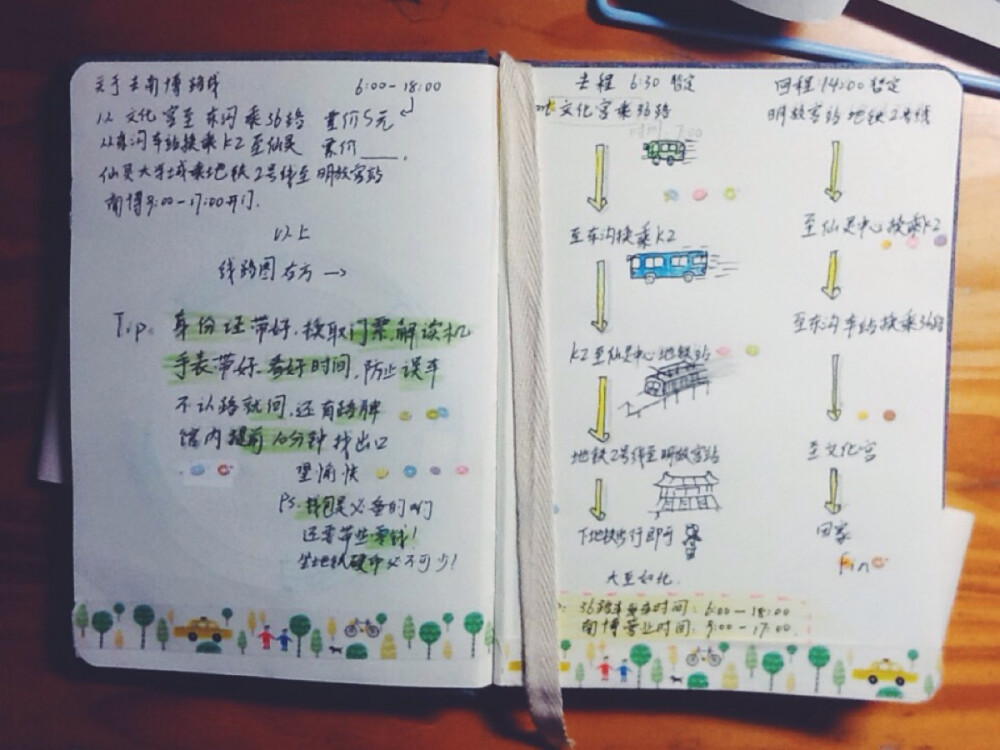 关于去南博路线 6:00-18:00
从文化宫至东沟乘36路 票价5元
从东沟车站换乘K2至仙灵 票价____.
仙灵大学城乘地铁2号线至明故宫站
南博9:00-17:00开门.
以上
线路图右方→
Tip: 身份证带好.换取门票,解读机
手表带好.看好时间,防止误车
不认路就问,还有路牌
馆内提前10分钟找出口
望愉快
Ps.钱包是必备的啊们
还要带些零钱!
坐地铁硬币必不可少!
去程 6:30 暂定
文化宫乘36路
时间: 7:00
至东沟换乘K2
K2至仙灵中心地铁站
地铁2号线至明故宫站
下地铁步行即可
大至如此.
36路车发车时间: 6:00-18:00
南博营业时间: 9:00-17:00.
回程 14:00 暂定
明故宫站地铁2号线
至仙灵中心换乘K2
至东沟车站换乘36路
至文化宫
回家
Fin